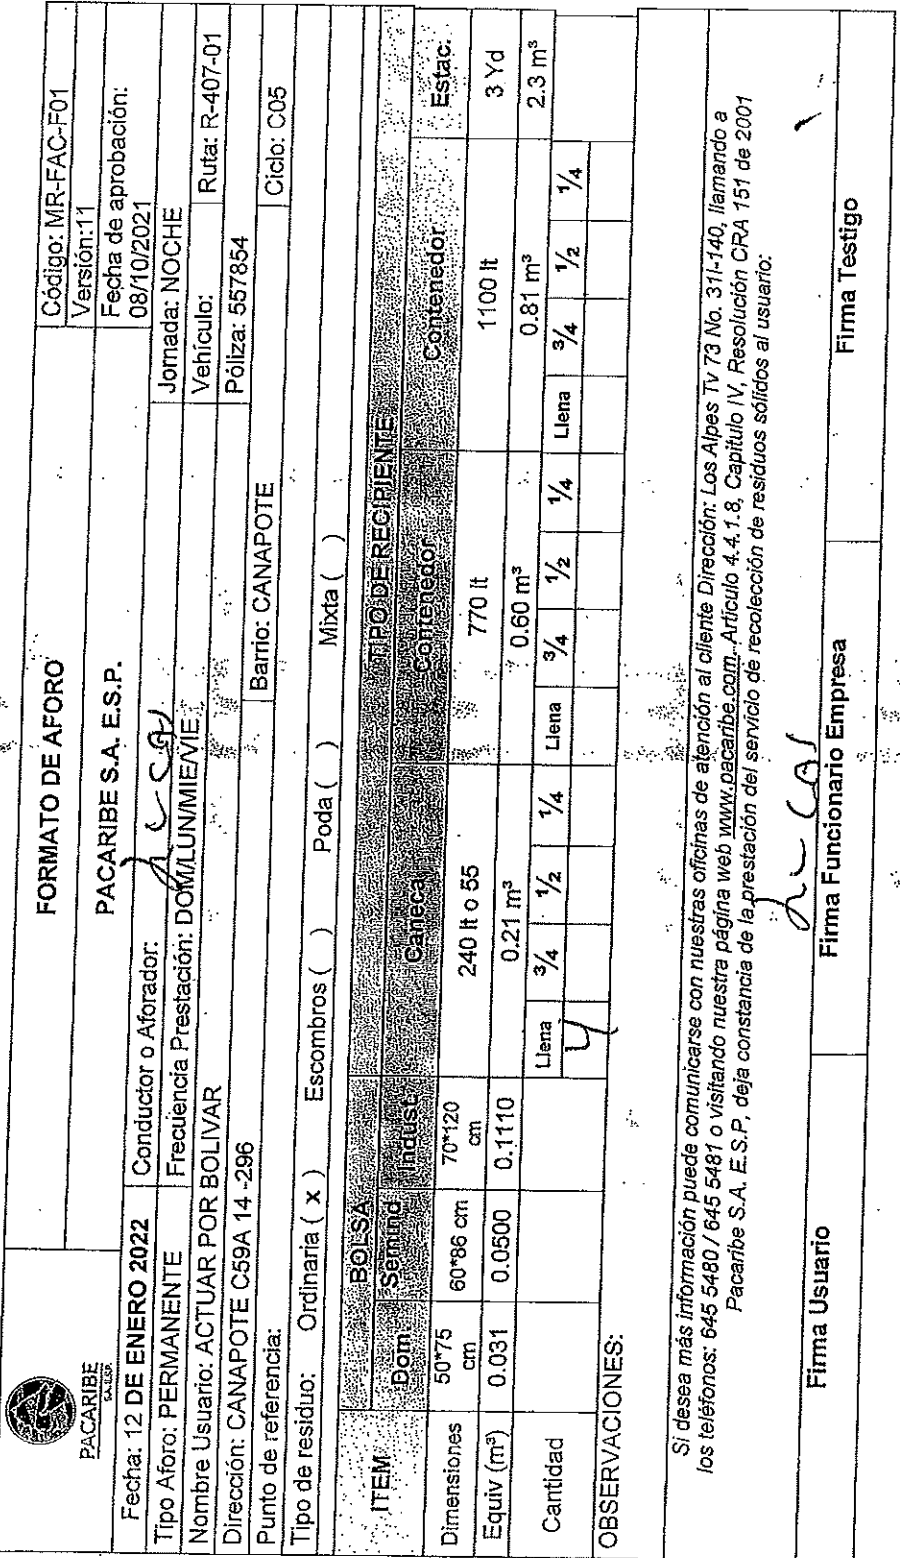 PACARIBE
S.A. E.S.P.
FORMATO DE AFORO
PACARIBE S.A. E.S.P.
Código: MR-FAC-F01
Versión:11
Fecha de aprobación:
08/10/2021
Fecha: 12 DE ENERO 2022
Conductor o Aforador:
Jornada: NOCHE
Tipo Aforo: PERMANENTE
Frecuencia Prestación: DOM/LUN/MIE/VIE
Vehículo:
Ruta: R-407-01
Nombre Usuario: ACTUAR POR BOLIVAR
Póliza: 557854
Dirección: CANAPOTE C59A 14 -296
Barrio: CANAPOTE
Ciclo: C05
Punto de referencia:
Tipo de residuo: Ordinaria ( x ) Escombros ( ) Poda ( ) Mixta ( )
ITEM
BOLSA
TIPO DE RECIPIENTE
Dom. Semind Indust. Caneca Contenedor Contenedor Estac.
Dimensiones 50*75 cm 60*86 cm 70*120 cm 240 lt o 55 770 lt 1100 lt 3 Yd
Equiv (m³) 0.031 0.0500 0.1110 0.21 m³ 0.60 m³ 0.81 m³ 2.3 m³
Cantidad
Llena 3/4 1/2 1/4 Llena 3/4 1/2 1/4 Llena 3/4 1/2 1/4
4
OBSERVACIONES:
Si desea más información puede comunicarse con nuestras oficinas de atención al cliente Dirección: Los Alpes Tv 73 No. 31I-140, llamando a
los teléfonos: 645 5480 / 645 5481 o visitando nuestra página web www.pacaribe.com. Articulo 4.4.1.8, Capitulo IV, Resolución CRA 151 de 2001
Pacaribe S.A. E.S.P, deja constancia de la prestación del servicio de recolección de residuos sólidos al usuario:
Firma Usuario
Firma Funcionario Empresa
Firma Testigo